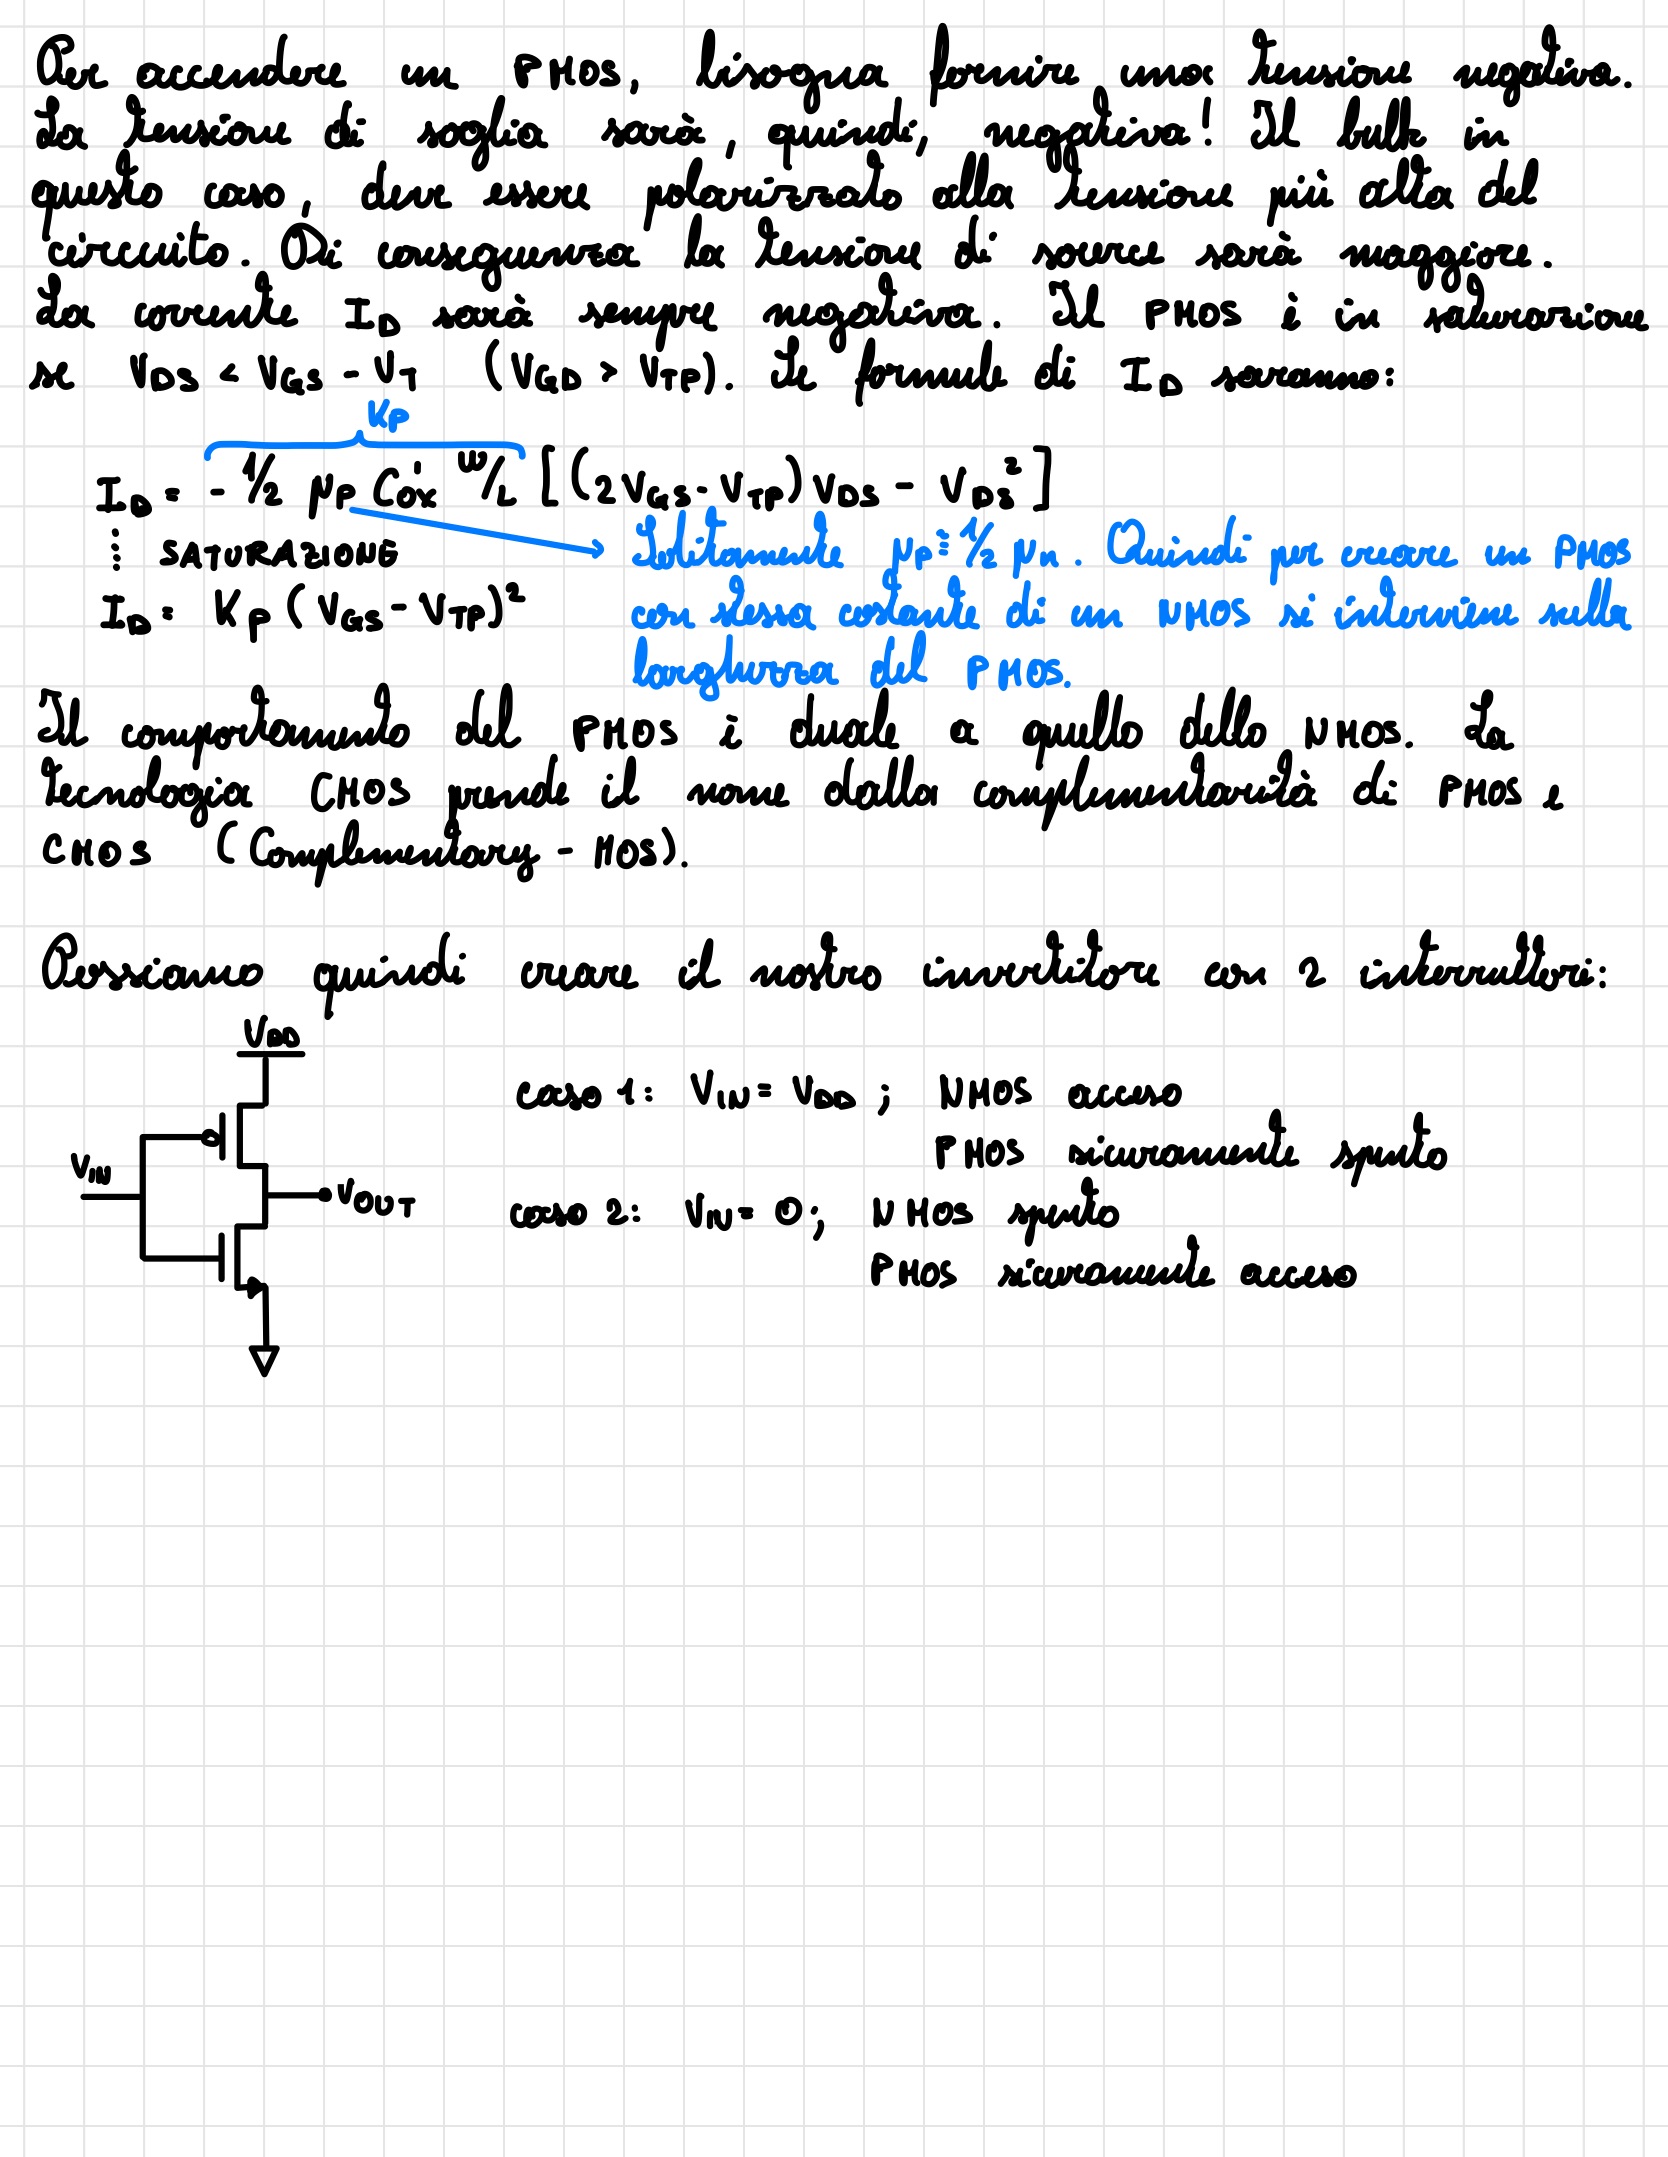 Per accendere un PMOS, bisogna fornire una tensione negativa.
La tensione di soglia sarà, quindi, negativa! Il bulk in
questo caso, deve essere polarizzato alla tensione più alta del
circuito. Di conseguenza la tensione di source sarà maggiore.
La corrente I_D sarà sempre negativa. Il PMOS è in saturazione
se V_DS < V_GS - V_T (V_GD > V_TP). Le formule di I_D saranno:
K_P
I_D = - 1/2 μ_P C'ox W/L [(2V_GS - V_TP) V_DS - V_DS²]
⋮ SATURAZIONE
I_D = K_P (V_GS - V_TP)²
Solitamente μ_P ≅ 1/2 μ_n. Quindi per creare un PMOS
con stessa costante di un NMOS si interviene sulla
larghezza del PMOS.
Il comportamento del PMOS è duale a quello dello NMOS. La
tecnologia CMOS prende il nome dalla complementarità di PMOS e
CMOS (Complementary - MOS).
Possiamo quindi creare il nostro invertitore con 2 interruttori:
V_DD
V_IN
V_OUT
caso 1: V_IN = V_DD ; NMOS acceso
PMOS sicuramente spento
caso 2: V_IN = 0 ; NMOS spento
PMOS sicuramente acceso